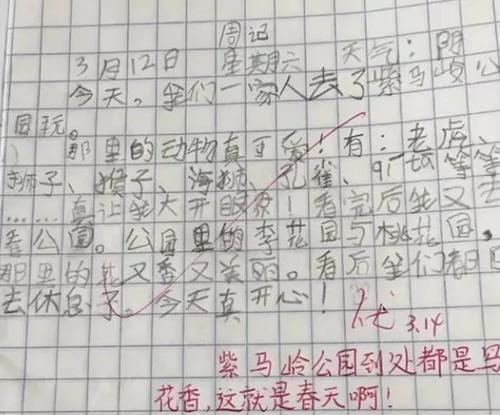 周记
3月12日 星期六 天气：阴
今天，我们一家人去了紫马岭公
园玩。
那里的动物真可爱！有：老虎、
狮子、猴子、海狮、孔雀、等等
……真让我大开眼界！看完后我又去
看公园。公园里的李花园与桃花园，
那里的花又香又美丽。看后我们都回
去休息了。今天真开心！
优 3.14
紫马岭公园到处都是鸟
花香，这就是春天啊！